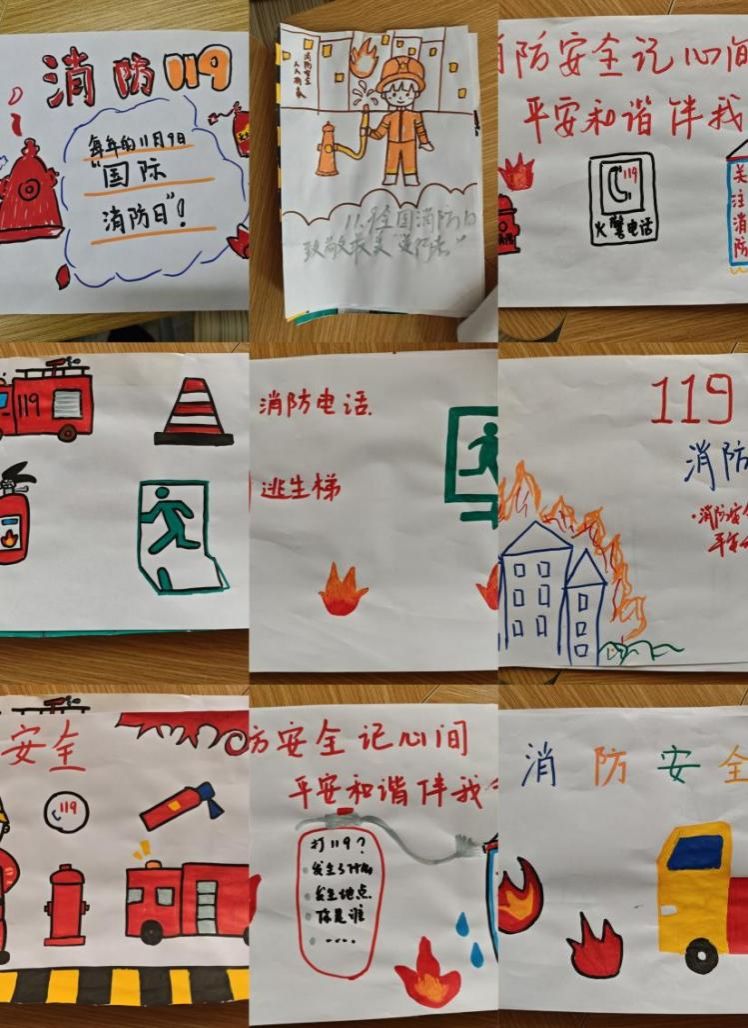 消防119
每年的11月9日
"国际
消防日"!
消防安全
11.9全国消防日
致敬最美"逆行者"
防安全记心间
平安和谐伴我
119
火警电话
关注消防
119
消防电话
逃生梯
119
消防
·消防安全
平安
安全
119
防安全记心间
平安和谐伴我
打119?
发生地点
你是谁
....
消防安全